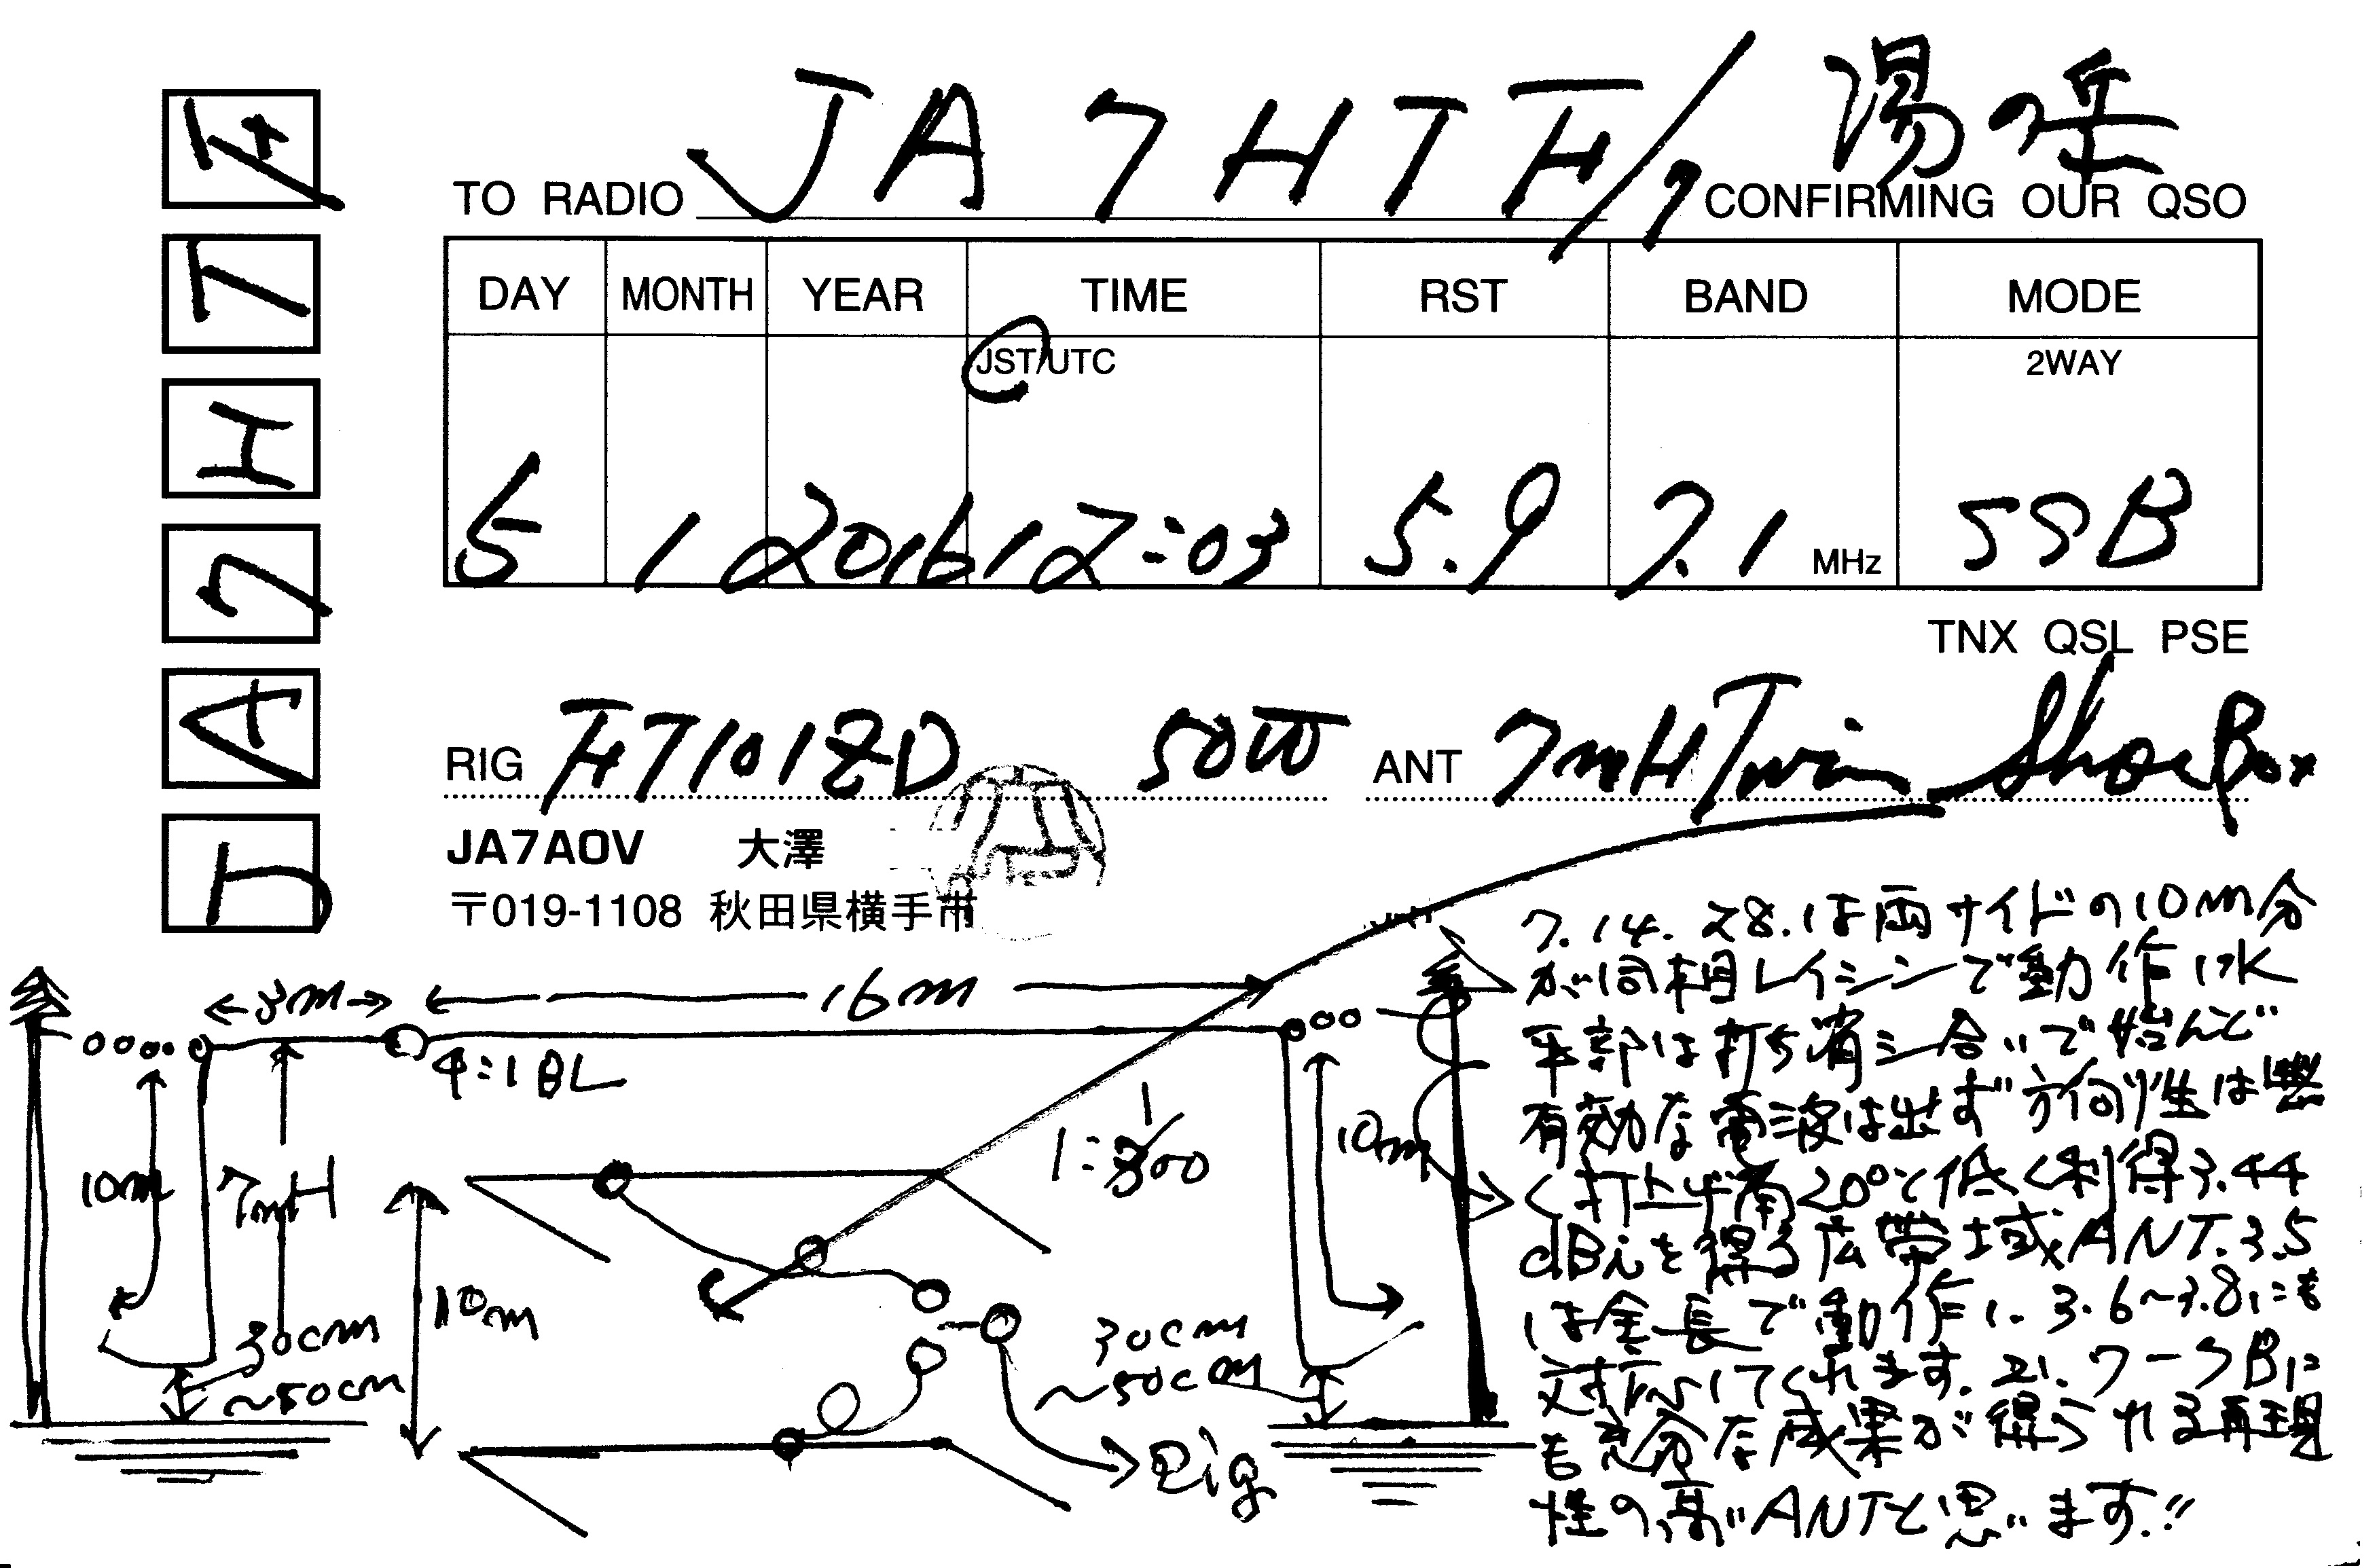 TO RADIO JA7HTF/7 湯の岳 CONFIRMING OUR QSO
F
T
H
7
A
J
DAY MONTH YEAR TIME RST BAND MODE
JST/UTC 2WAY
5 1 2016 12:03 5.9 7.1 MHz SSB
TNX QSL PSE
RIG FT101ZD 50W ANT 7mH Twin Shoe Box
JA7AOV 大澤
〒019-1108 秋田県横手市
7.14.28.は両サイドの10m分
が同相レイションで動作し水
平部は打ち消し合いで殆んど
有効な電波は出ず方向性は無
く打上げ角20°と低く利得3.44
dBiを得る広帯域ANT.3.5
は全長で動作し.3.6~3.8にも
対応してくれます.21.7-5Bに
も充分な成果が得られる再現
性の高いANTと思います.!!
3m 16m
4:1 BL
10m 7mH
30cm
~50cm
10m
1:1
10m
30cm
~50cm
Rig